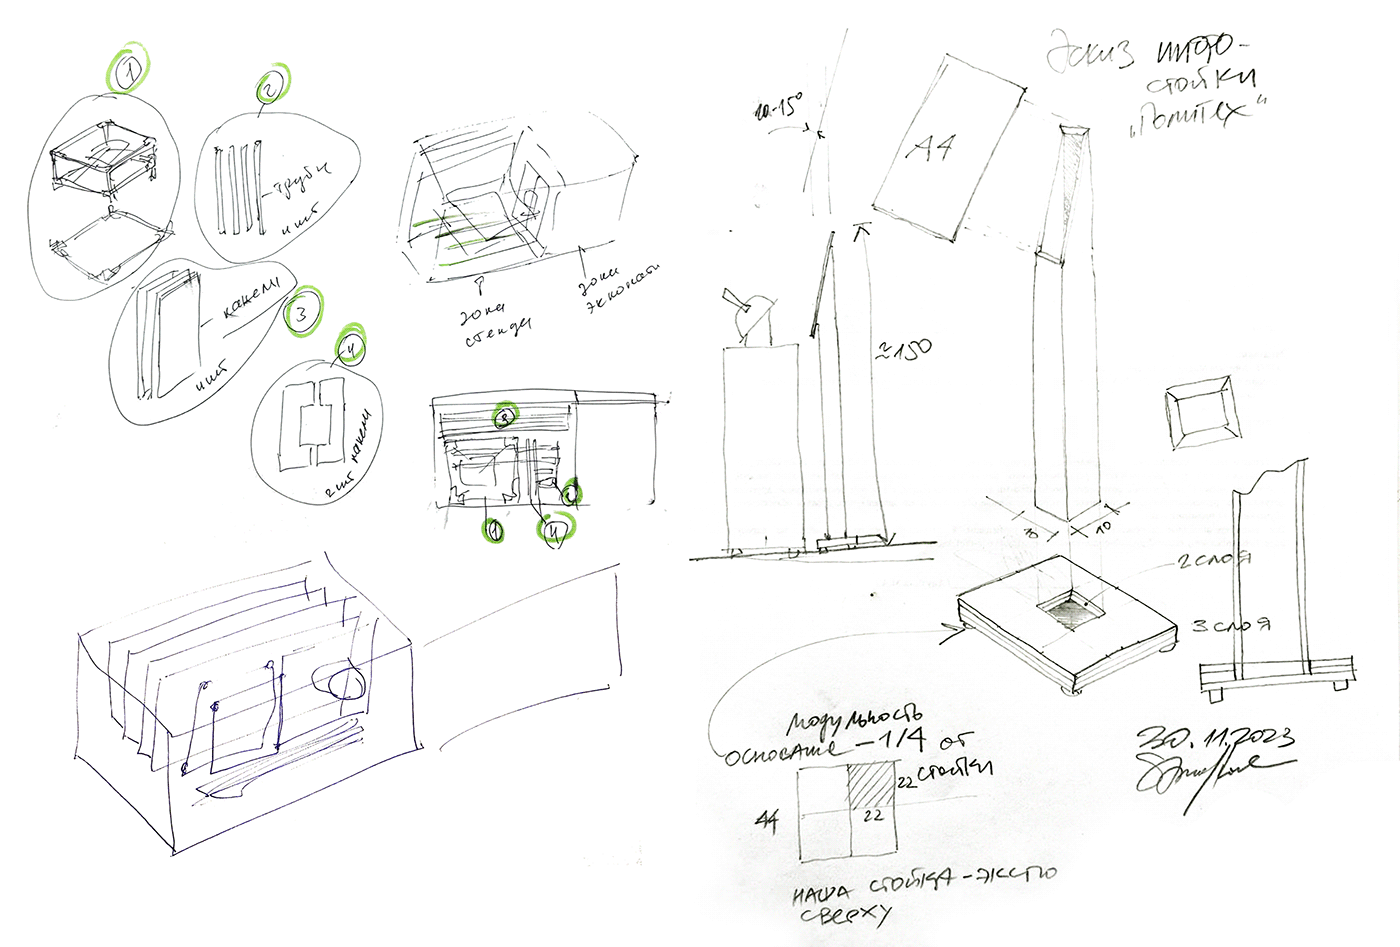 1
2
трубы
4 шт
панели
3
4 шт
4
2 шт панели
зона
стенда
зона
экспоната
3
1
4
2
Эскиз инфо-
стойки
„Политех“
10-15°
А4
≈150
10
2 слоя
3 слоя
30.11.2023
модульность
основание – 1/4 от
стойки
22
44
22
наша стойка – экспо
сверху